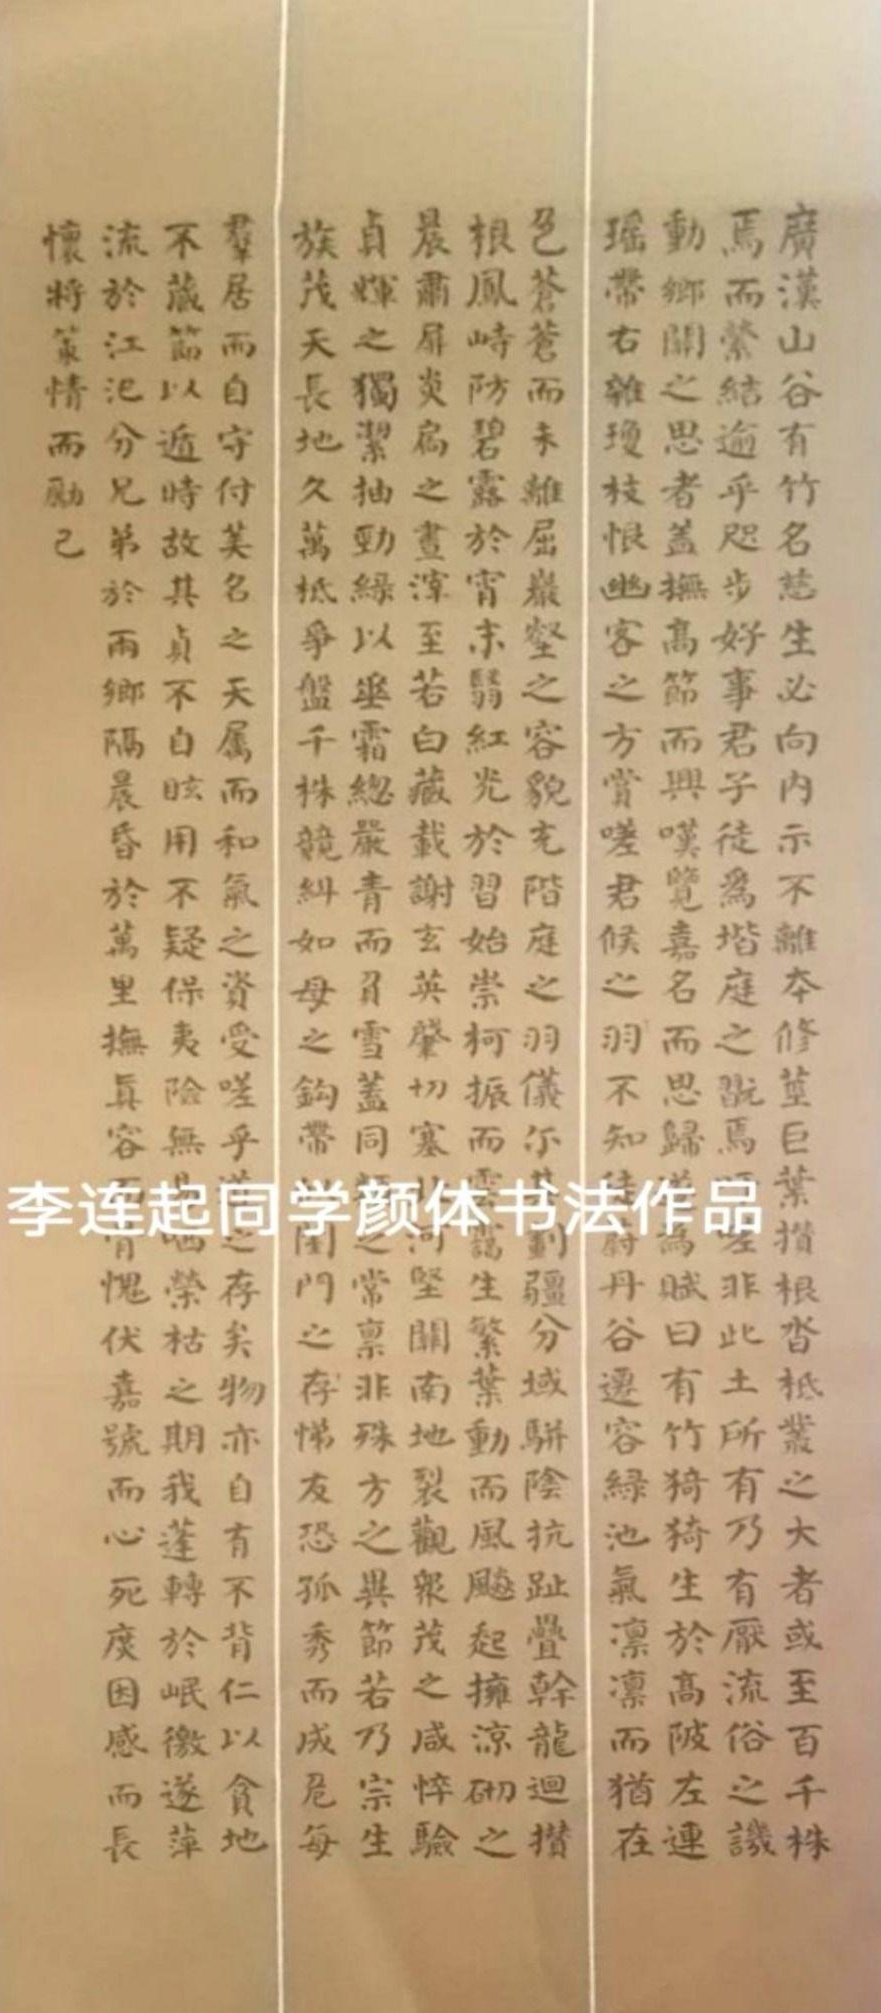 廣漢山谷有竹名慈生必向内示不離本修莖巨葉攢根沓柢叢之大者或至百千株
焉而縈結逾乎咫步好事君子徒爲堦庭之翫焉嗟非此土所有乃有厭流俗之譏
動鄉關之思者蓋撫高節而興嘆覽嘉名而思歸遂爲賦曰有竹猗猗生於高陂左連
瑶帶右雜瓊枝恨幽客之方賞嗟君候之羽不知徒蔚丹谷遷容緑池氣凛凛而猶在
色蒼蒼而未離屈巖壑之容貌充階庭之羽儀尔其劃疆分域駢陰抗趾疊幹龍迴攢
根鳳峙防碧露於宵末翳紅光於習始崇柯振而雲靄生繁葉動而風飈起擁涼砌之
晨肅屏炎扃之晝滓至若白藏載謝玄英肇切塞北河堅關南地裂觀衆茂之咸悴驗
貞輝之獨潔抽勁緑以垂霜總嚴青而負雪蓋同類之常禀非殊方之異節若乃宗生
族茂天長地久萬柢爭盤千株競糾如母之鈎帶似閨門之存悌友恐孤秀而成危每
羣居而自守付美名之天属而和氣之資受嗟乎道之存矣物亦自有不背仁以貪地
不藏節以遁時故其貞不自眩用不疑保夷險無易哂榮枯之期我蓬轉於岷徼遂萍
流於江汜分兄弟於兩鄉隔晨昏於萬里撫真容而有愧伏嘉號而心死庋因感而長
懷將策情而勵己
李连起同学颜体书法作品